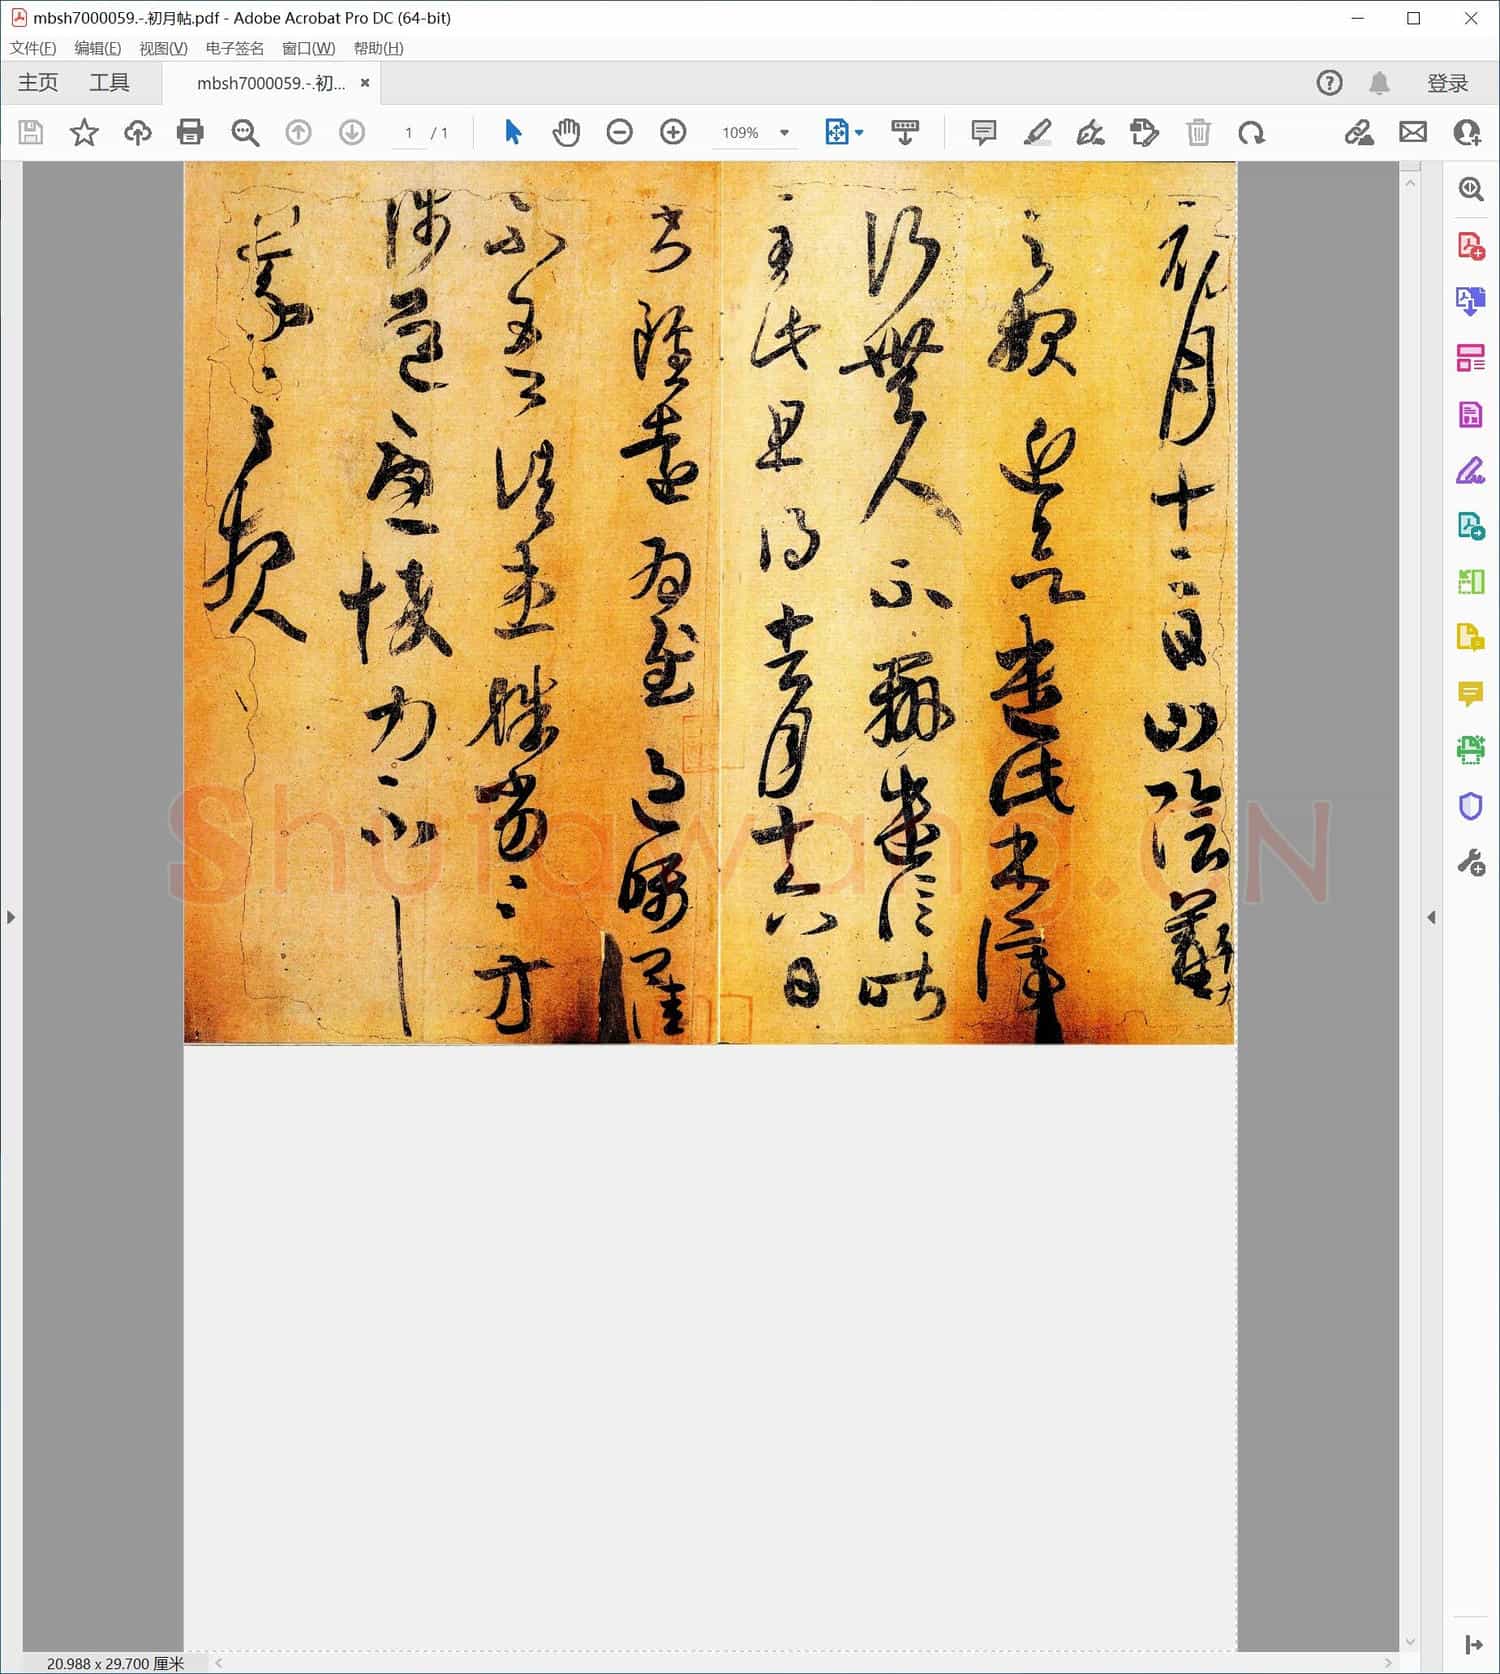 mbsh7000059.-.初月帖.pdf - Adobe Acrobat Pro DC (64-bit)
文件(F) 编辑(E) 视图(V) 电子签名 窗口(W) 帮助(H)
主页 工具 mbsh7000059.-.初... × 登录
1 / 1 109%
初月十二日山陰羲
之報近欲遣此書停
行無人不辦遣信昨
至此且得去月十六日
書雖遠爲慰過囑卿
不吾諸患殊勞之方
涉道憂悴力不一
羲之報
Shufawang.CN
20.988 x 29.700 厘米